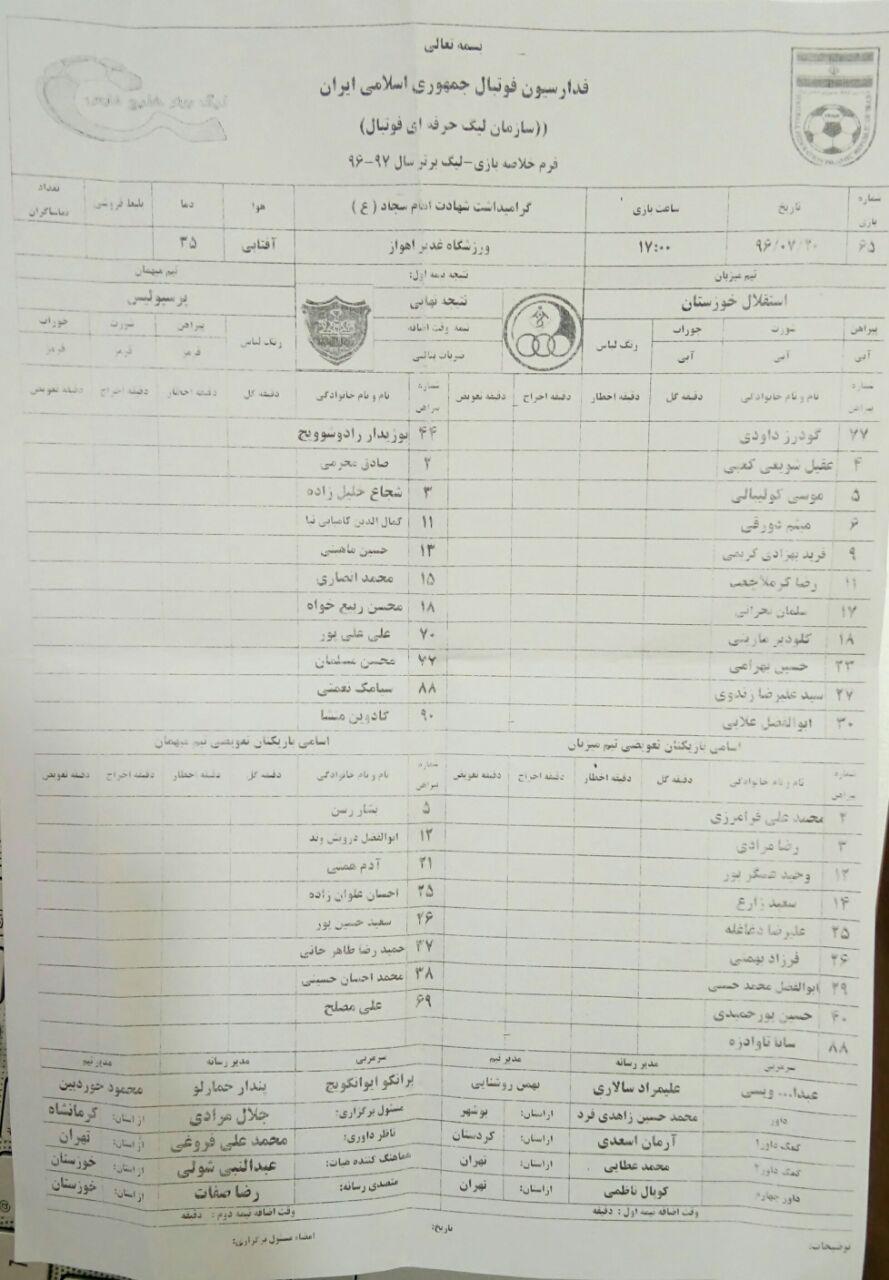 بسمه تعالی
فدراسیون فوتبال جمهوری اسلامی ایران
((سازمان لیگ حرفه ای فوتبال)
فرم خلاصه بازی-لیگ برتر سال ۹۷-۹۶
شماره بازی تاریخ ساعت بازی گرامیداشت شهادت امام سجاد (ع) هوا دما بلیط فروشی تعداد تماشاگران
۶۵ ۹۶/۰۷/۲۰ ۱۷:۰۰ ورزشگاه غدیر اهواز آفتابی ۳۵
تیم میزبان نتیجه نیمه اول: تیم میهمان
استقلال خوزستان نتیجه نهایی پرسپولیس
پیراهن شورت جوراب رنگ لباس نیمه وقت اضافه رنگ لباس پیراهن شورت جوراب
آبی آبی آبی ضربات پنالتی قرمز قرمز قرمز
شماره پیراهن نام و نام خانوادگی دقیقه گل دقیقه اخطار دقیقه اخراج دقیقه تعویض شماره پیراهن نام و نام خانوادگی دقیقه گل دقیقه اخطار دقیقه اخراج دقیقه تعویض
۷۷ گودرز داودی ۴۴ بوزیدار رادوشوویچ
۴ عقیل شویعی کعبی ۲ صادق محرمی
۵ موسی کولیبالی ۳ شجاع خلیل زاده
۶ میثم دورقی ۱۱ کمال الدین کامیابی نیا
۹ فرید بهزادی کریمی ۱۳ حسین ماهینی
۱۱ رضا کرملاچعب ۱۵ محمد انصاری
۱۷ سلمان بحرانی ۱۸ محسن ربیع خواه
۱۸ کلودیر مارینی ۷۰ علی علی پور
۲۳ حسین بهرامی ۷۷ محسن مسلمان
۲۷ سید علیرضا زندوی ۸۸ سیامک نعمتی
۳۰ ابوالفضل علایی ۹۰ گادوین منشا
اسامی بازیکنان تعویضی تیم میزبان اسامی بازیکنان تعویضی تیم میهمان
شماره پیراهن نام و نام خانوادگی دقیقه گل دقیقه اخطار دقیقه اخراج دقیقه تعویض شماره پیراهن نام و نام خانوادگی دقیقه گل دقیقه اخطار دقیقه اخراج دقیقه تعویض
۲ محمد علی فرامرزی ۵ بشار رسن
۳ رضا مرادی ۱۲ ابوالفضل درویش وند
۱۲ وحید عسگر پور ۲۱ آدم همتی
۱۴ سعید زارع ۲۵ احسان علوان زاده
۲۵ علیرضا دغاغله ۲۶ سعید حسین پور
۲۶ فرزاد بهمنی ۳۷ حمید رضا طاهر خانی
۲۹ ابوالفضل محمد حسنی ۳۸ محمد احسان حسینی
۴۰ حسین پورحمیدی ۶۹ علی مصلح
۸۸ سابا تاوادزه
سرمربی مدیر رسانه مدیر تیم سرمربی مدیر رسانه مدیر تیم
عبدا... ویسی علیمراد سالاری بهمن روشنایی برانکو ایوانکویچ پندار خمارلو محمود خوردبین
داور محمد حسین زاهدی فرد از استان: بوشهر مسئول برگزاری: جلال مرادی از استان: کرمانشاه
کمک داور۱ آرمان اسعدی از استان: کردستان ناظر داوری: محمد علی فروغی از استان: تهران
کمک داور۲ محمد عطایی از استان: تهران هماهنگ کننده هیات: عبدالنبی شولی از استان: خوزستان
داور چهارم کوپال ناظمی از استان: تهران متصدی رسانه: رضا صفات از استان: خوزستان
وقت اضافه نیمه اول: دقیقه وقت اضافه نیمه دوم: دقیقه
توضیحات: تاریخ: امضاء مسئول برگزاری: